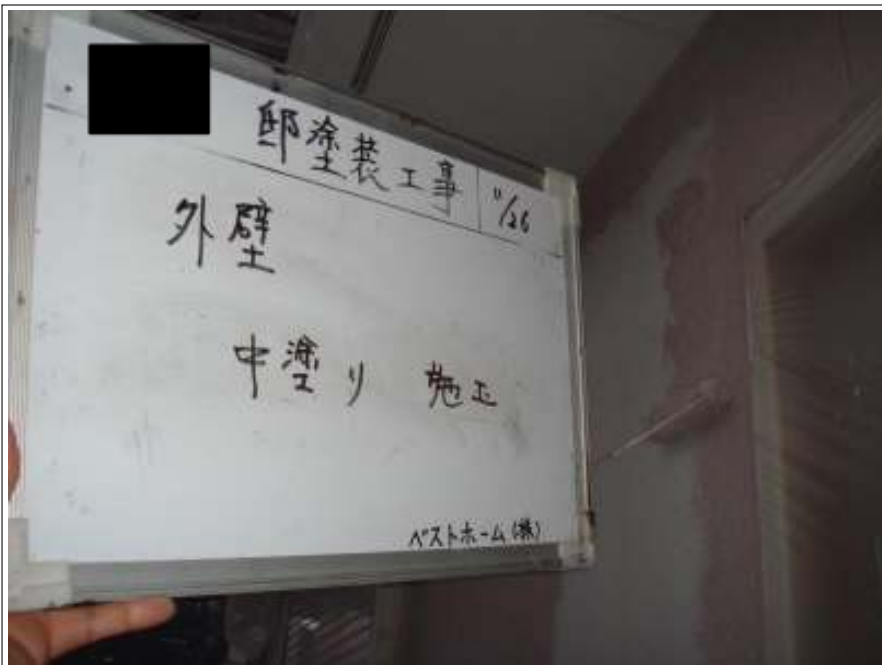 邸塗装工事 11/26
外壁
中塗り 施工
ベストホーム(株)